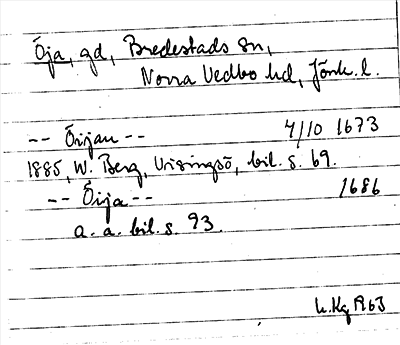 Öja, gd, Bredestads sn,
Norra Vedbo hd, Jönk. l.
-- Öijan -- 4/10 1673
1885, W. Berg, Visingsö, bil. s. 69.
-- Öija -- 1686
a. a. bil. s. 93.
1963